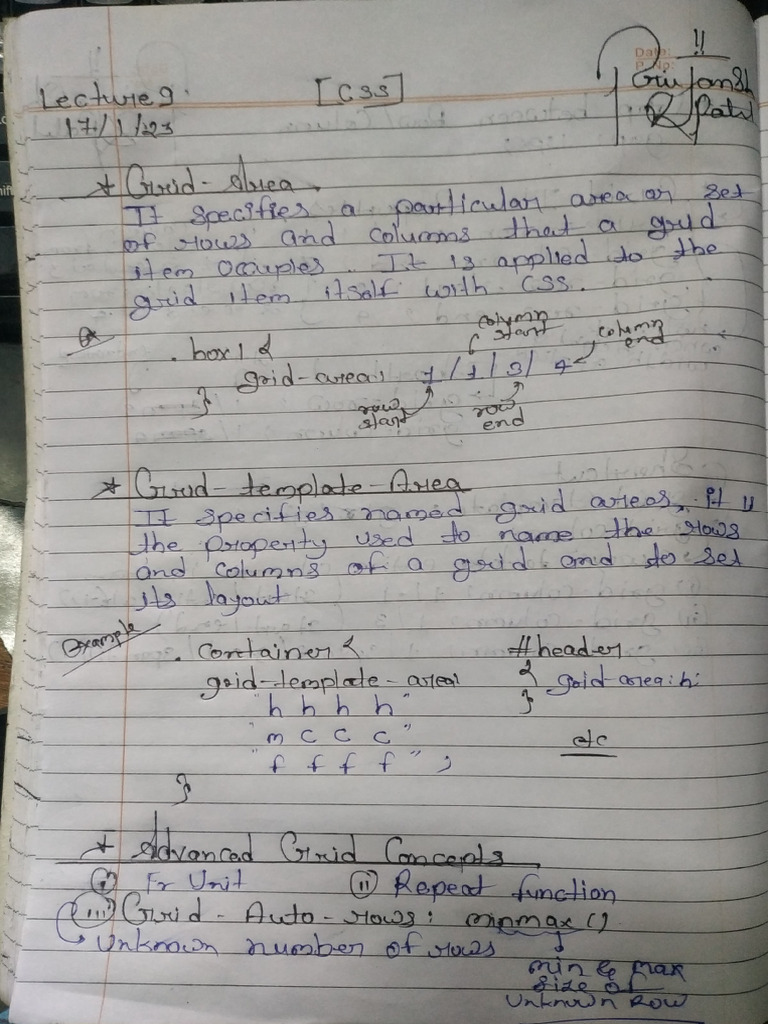 Date:
P. No:
11
Lecture 9. [CSS] Grujansh
17/1/23 R Patil
* Grid-Area
It specifies a particular area or set
of rows and columns that a grid
item occupies. It is applied to the
grid item itself with CSS.
column start column end
. box1 {
grid-area: 1 / 1 / 3 / 4
}
row start row end
* Grid-template-Area
It specifies named grid areas, It is
the property used to name the rows
and columns of a grid and to set
its layout
Example
. container { #header
grid-template-area: { grid-area: h:
"h h h h" }
"m c c c" etc
"f f f f" ;
}
* Advanced Grid Concepts
(i) Fr Unit (ii) Repeat function
(iii) Grid-Auto-rows: minmax()
Unknown number of rows
min & max
size of
Unknown Row